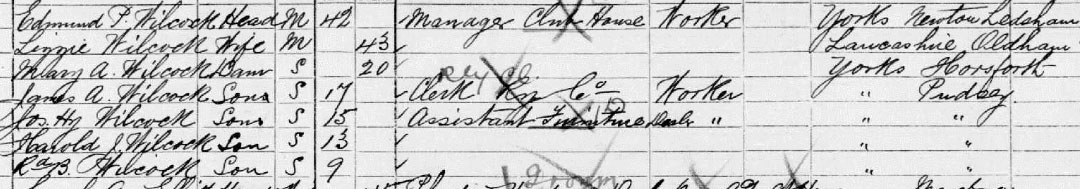 Edmund P. Wilcock Head M 42 Manager Club House Worker Yorks Newton Ledsham
Lizzie Wilcock Wife M 43 Lancashire Oldham
Mary A. Wilcock Daur S 20 Yorks Horsforth
James A. Wilcock Son S 17 Clerk Ry Co Worker " Pudsey
Jos. Hy Wilcock Son S 15 Assistant Furniture Dealer " " "
Harold J. Wilcock Son S 13 " "
Wilcock Son S 9 " "